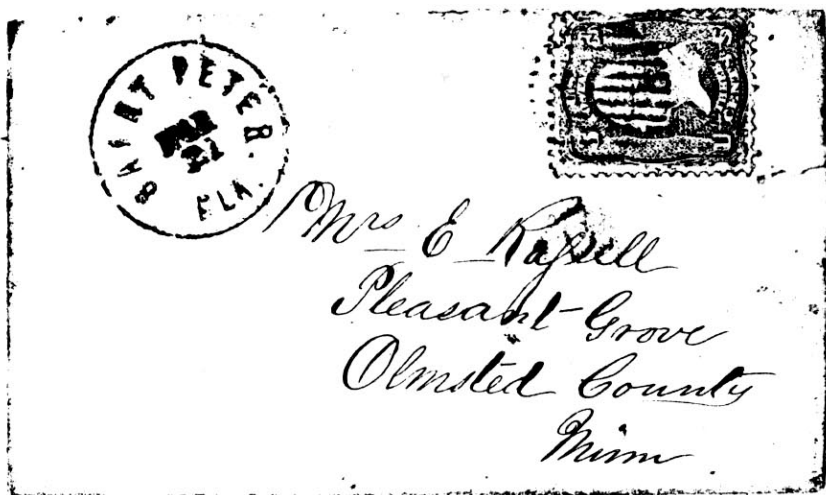 SAINT PETER. FLA.
21
Mrs E
Pleasant Grove
Olmsted County
Minn